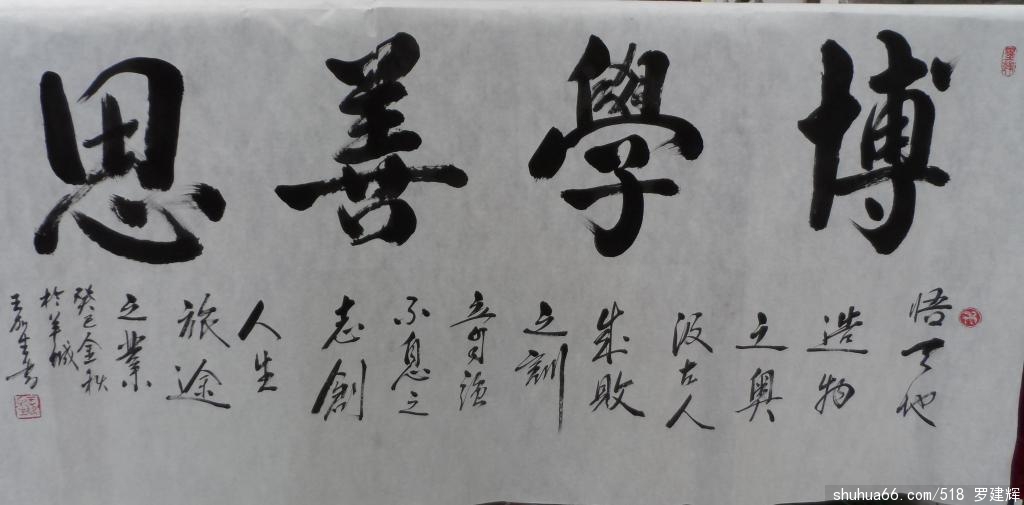 博學善思
悟天地
造物
之奥
汲古人
成敗
之訓
立自强
不息之
志創
人生
旅途
之業
癸巳金秋
於羊城
shuhua66.com/518 罗建辉